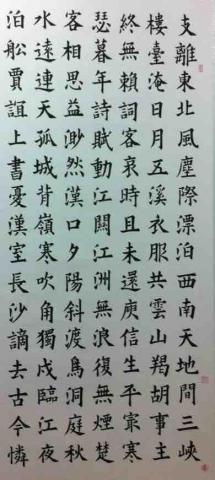 支離東北風塵際漂泊西南天地間三峽
樓臺淹日月五溪衣服共雲山羯胡事主
終無賴詞客哀時且未還庾信生平寂寒
瑟暮年詩賦動江關江洲無浪復無煙楚
客相思益渺然漢口夕陽斜渡鳥洞庭秋
水遠連天孤城背嶺寒吹角獨戍臨江夜
泊船賈誼上書憂漢室長沙謫去古今憐